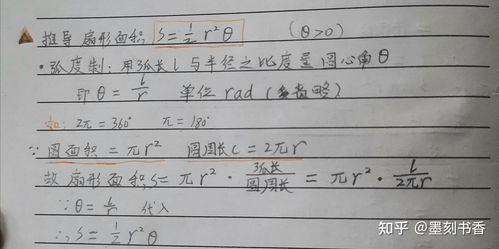 推导 扇形面积 S = 1/2 r²θ (θ>0)
·弧度制：用弧长 l 与半径之比度量圆心角 θ
即 θ = l/r 单位 rad (省略)
如：2π = 360° π = 180°
∵ 圆面积 = πr² 圆周长 C = 2πr
故 扇形面积 S = πr² · 弧长/圆周长 = πr² · l/2πr
∵ θ = l/r 代入
∴ S = 1/2 r²θ
知乎 @墨刻书香